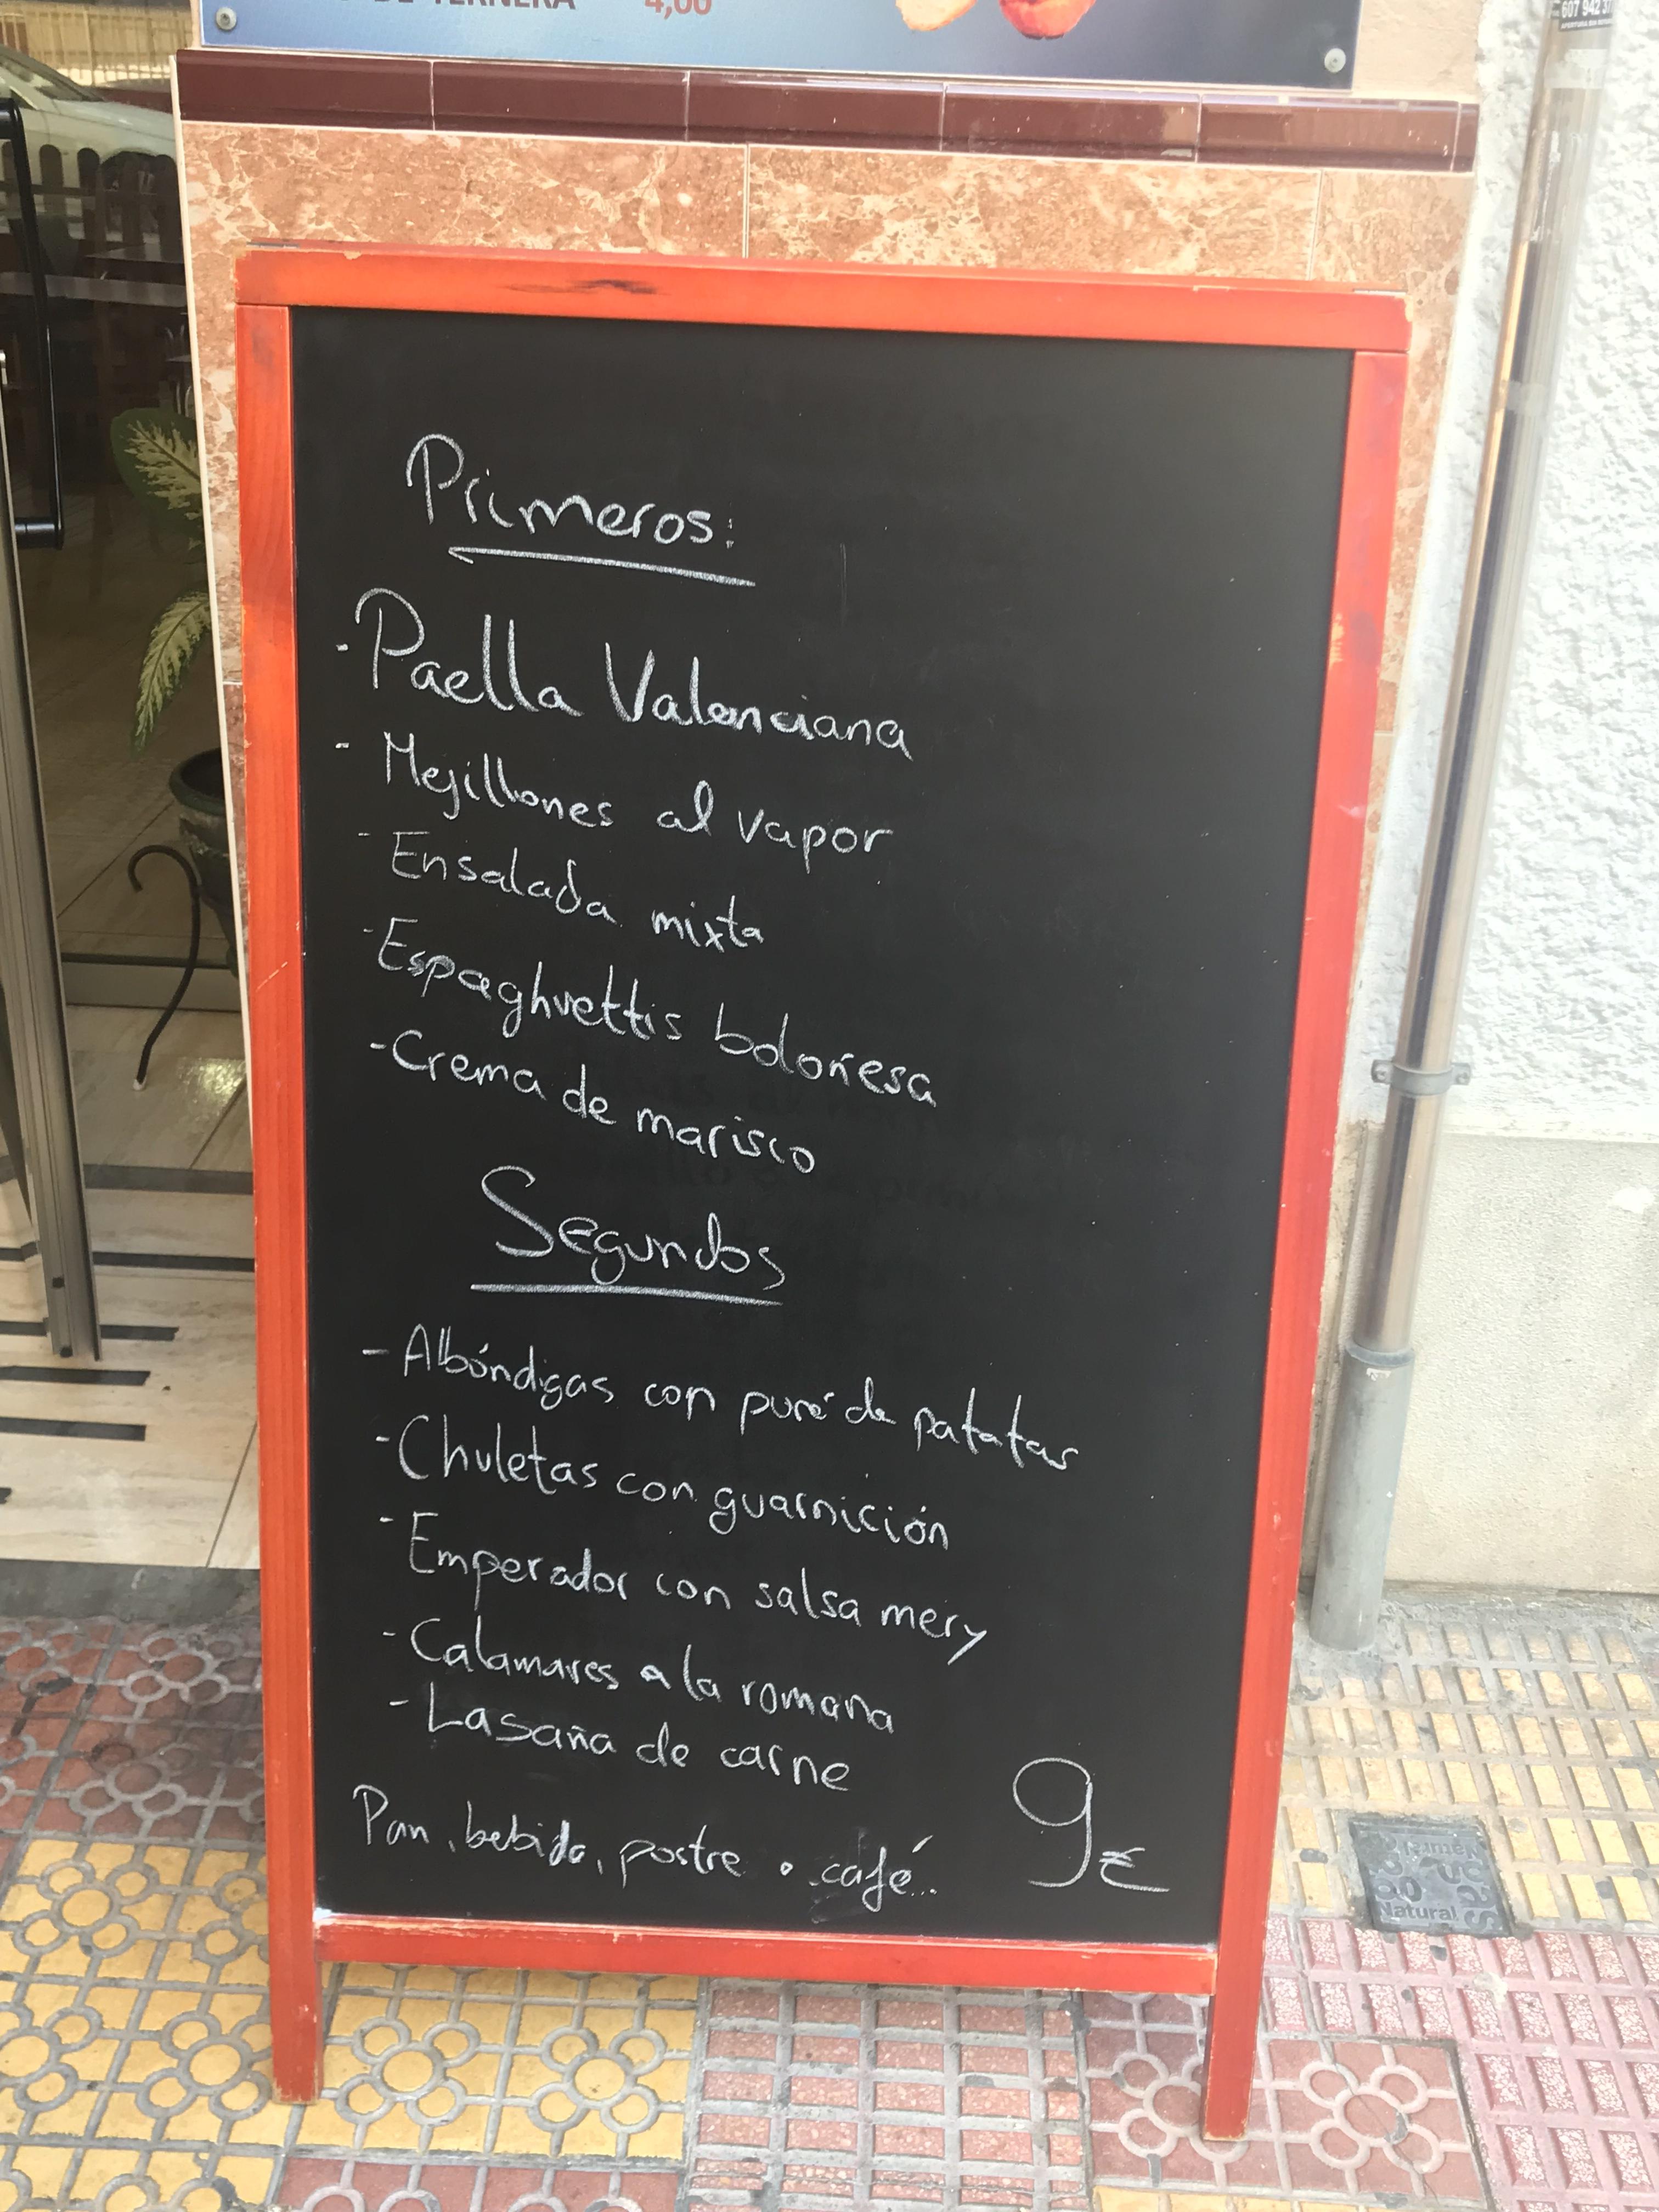 DE TERNERA 4,00
607 942 3
Primeros:
- Paella Valenciana
- Mejillones al vapor
- Ensalada mixta
- Espaghuettis boloñesa
- Crema de marisco
Segundos
- Albóndigas con puré de patatas
- Chuletas con guarnición
- Emperador con salsa mery
- Calamares a la romana
- Lasaña de carne
Pan, bebida, postre o café...
9€
Gas
Natural